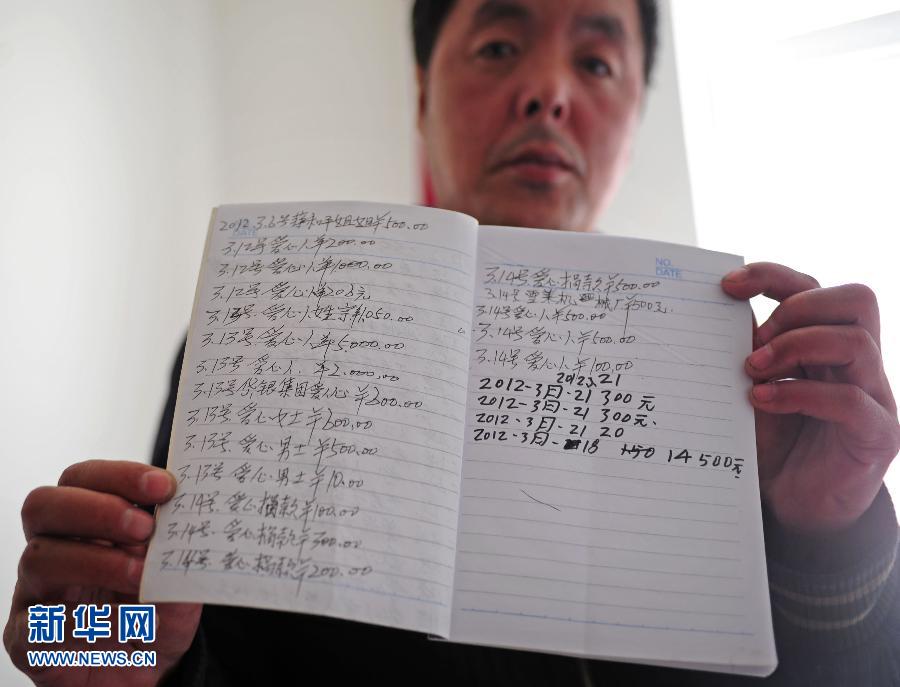 DATE
2012.3.6号薛和平姐姐¥500.00
3.12号爱心人¥200.00
3.12号爱心人¥1000.00
3.12号爱心人¥208元
3.13号爱心人 1050.00
3.13号爱心人¥5.000.00
3.13号爱心人.¥2.000.00
3.13号华银集团爱心¥300.00
3.13号爱心女士¥600.00
3.13号.爱心男士¥500.00
3.13号爱心.男士¥10.00
3.14号.爱心捐款¥100.00
3.14号.爱心捐款¥300.00
3.14号.爱心捐款¥200.00
NO.
DATE
3.14号爱心捐款¥500.00
3.14号 机械厂¥500元
3.14号爱心人¥500.00
3.14号爱心人¥500.00
3.14号爱心人¥100.00
2012.3.21
2012-3月-21 300元
2012-3月-21 300元.
2012-3月-21 20
2012-3月-18 14500元
新华网
WWW.NEWS.CN